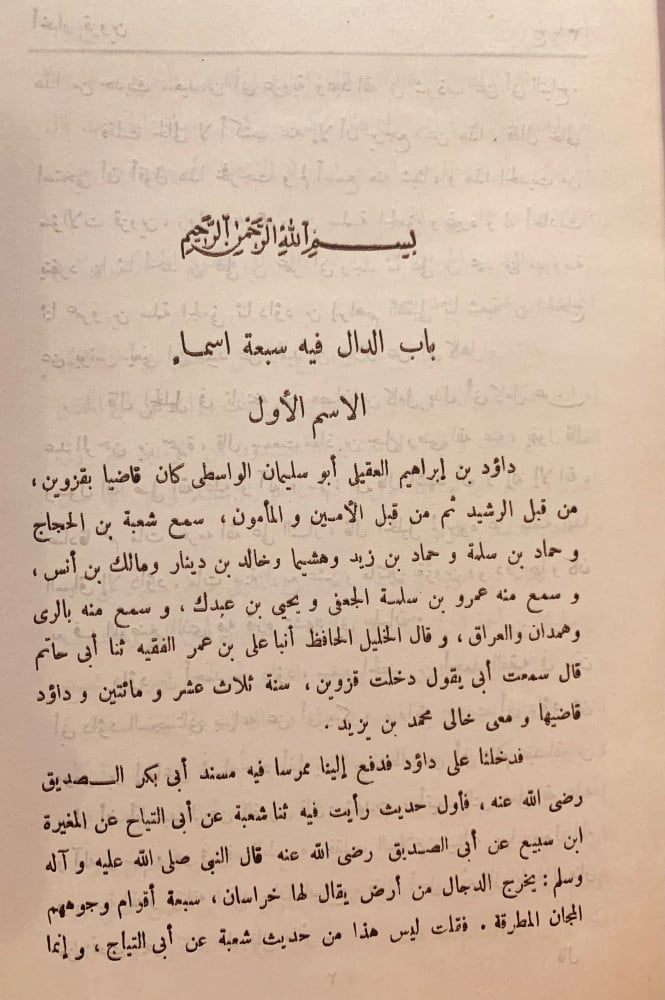 بسم الله الرحمن الرحيم
باب الدال فيه سبعة اسماء
الاسم الأول
داؤد بن إبراهيم العقيلي أبو سليمان الواسطى كان قاضيا بقزوين،
من قبل الرشيد ثم من قبل الأمين و المأمون، سمع شعبة بن الحجاج
و حماد بن سلمة و حماد بن زيد وهشيما وخالد بن دينار ومالك بن أنس،
و سمع منه عمرو بن سلمة الجعفى و يحيى بن عبدك، و سمع منه بالرى
وهمدان والعراق، و قال الخليل الحافظ أنبا على بن عمر الفقيه ثنا أبى حاتم
قال سمعت أبى يقول دخلت قزوين، سنة ثلاث عشر و مائتين و داؤد
قاضيها و معى خالى محمد بن يزيد.
فدخلنا على داؤد فدفع إلينا ممرسا فيه مسند أبى بكر الصديق
رضى الله عنه، فأول حديث رأيت فيه ثنا شعبة عن أبى التياح عن المغيرة
ابن سبيع عن أبى الصديق رضى الله عنه قال النبى صلى الله عليه و آله
وسلم: يخرج الدجال من أرض يقال لها خراسان، سبعة أقوام وجوههم
المجان المطرقة. فقلت ليس هذا من حديث شعبة عن أبى التياج، و إنما